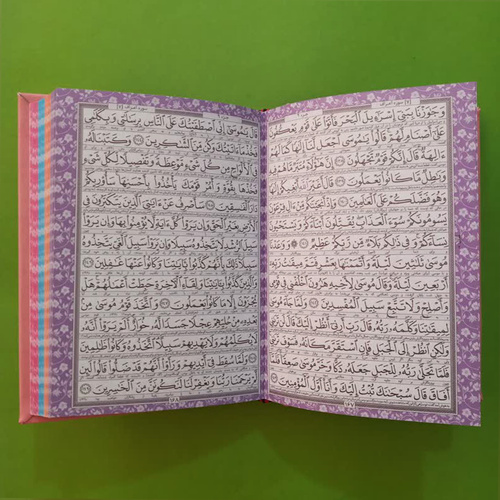 وَجَٰوَزْنَا بِبَنِىٓ إِسْرَٰٓءِيلَ ٱلْبَحْرَ فَأَتَوْا۟ عَلَىٰ قَوْمٍ يَعْكُفُونَ
عَلَىٰٓ أَصْنَامٍ لَّهُمْ قَالُوا۟ يَٰمُوسَى ٱجْعَل لَّنَآ إِلَٰهًا كَمَا لَهُمْ
ءَالِهَةٌ قَالَ إِنَّكُمْ قَوْمٌ تَجْهَلُونَ ١٣٨ إِنَّ هَٰٓؤُلَآءِ مُتَبَّرٌ مَّا هُمْ فِيهِ
وَبَٰطِلٌ مَّا كَانُوا۟ يَعْمَلُونَ ١٣٩ قَالَ أَغَيْرَ ٱللَّهِ أَبْغِيكُمْ إِلَٰهًا
وَهُوَ فَضَّلَكُمْ عَلَى ٱلْعَٰلَمِينَ ١٤٠ وَإِذْ أَنجَيْنَٰكُم مِّنْ ءَالِ فِرْعَوْنَ
يَسُومُونَكُمْ سُوٓءَ ٱلْعَذَابِ يُقَتِّلُونَ أَبْنَآءَكُمْ وَيَسْتَحْيُونَ
نِسَآءَكُمْ وَفِى ذَٰلِكُم بَلَآءٌ مِّن رَّبِّكُمْ عَظِيمٌ ١٤١ وَوَٰعَدْنَا
مُوسَىٰ ثَلَٰثِينَ لَيْلَةً وَأَتْمَمْنَٰهَا بِعَشْرٍ فَتَمَّ مِيقَٰتُ رَبِّهِۦٓ
أَرْبَعِينَ لَيْلَةً وَقَالَ مُوسَىٰ لِأَخِيهِ هَٰرُونَ ٱخْلُفْنِى فِى قَوْمِى
وَأَصْلِحْ وَلَا تَتَّبِعْ سَبِيلَ ٱلْمُفْسِدِينَ ١٤٢ وَلَمَّا جَآءَ مُوسَىٰ
لِمِيقَٰتِنَا وَكَلَّمَهُۥ رَبُّهُۥ قَالَ رَبِّ أَرِنِىٓ أَنظُرْ إِلَيْكَ قَالَ لَن تَرَىٰنِى
وَلَٰكِنِ ٱنظُرْ إِلَى ٱلْجَبَلِ فَإِنِ ٱسْتَقَرَّ مَكَانَهُۥ فَسَوْفَ تَرَىٰنِى
فَلَمَّا تَجَلَّىٰ رَبُّهُۥ لِلْجَبَلِ جَعَلَهُۥ دَكًّا وَخَرَّ مُوسَىٰ صَعِقًا فَلَمَّآ
أَفَاقَ قَالَ سُبْحَٰنَكَ تُبْتُ إِلَيْكَ وَأَنَا۠ أَوَّلُ ٱلْمُؤْمِنِينَ ١٤٣
١٦٧
قَالَ يَٰمُوسَىٰٓ إِنِّى ٱصْطَفَيْتُكَ عَلَى ٱلنَّاسِ بِرِسَٰلَٰتِى وَبِكَلَٰمِى
فَخُذْ مَآ ءَاتَيْتُكَ وَكُن مِّنَ ٱلشَّٰكِرِينَ ١٤٤ وَكَتَبْنَا لَهُۥ
فِى ٱلْأَلْوَاحِ مِن كُلِّ شَىْءٍ مَّوْعِظَةً وَتَفْصِيلًا لِّكُلِّ شَىْءٍ
فَخُذْهَا بِقُوَّةٍ وَأْمُرْ قَوْمَكَ يَأْخُذُوا۟ بِأَحْسَنِهَا سَأُو۟رِيكُمْ
دَارَ ٱلْفَٰسِقِينَ ١٤٥ سَأَصْرِفُ عَنْ ءَايَٰتِىَ ٱلَّذِينَ يَتَكَبَّرُونَ فِى
ٱلْأَرْضِ بِغَيْرِ ٱلْحَقِّ وَإِن يَرَوْا۟ كُلَّ ءَايَةٍ لَّا يُؤْمِنُوا۟ بِهَا وَإِن يَرَوْا۟
سَبِيلَ ٱلرُّشْدِ لَا يَتَّخِذُوهُ سَبِيلًا وَإِن يَرَوْا۟ سَبِيلَ ٱلْغَىِّ يَتَّخِذُوهُ
سَبِيلًا ذَٰلِكَ بِأَنَّهُمْ كَذَّبُوا۟ بِـَٔايَٰتِنَا وَكَانُوا۟ عَنْهَا غَٰفِلِينَ ١٤٦
وَٱلَّذِينَ كَذَّبُوا۟ بِـَٔايَٰتِنَا وَلِقَآءِ ٱلْـَٔاخِرَةِ حَبِطَتْ أَعْمَٰلُهُمْ هَلْ
يُجْزَوْنَ إِلَّا مَا كَانُوا۟ يَعْمَلُونَ ١٤٧ وَٱتَّخَذَ قَوْمُ مُوسَىٰ مِنۢ
بَعْدِهِۦ مِنْ حُلِيِّهِمْ عِجْلًا جَسَدًا لَّهُۥ خُوَارٌ أَلَمْ يَرَوْا۟ أَنَّهُۥ
لَا يُكَلِّمُهُمْ وَلَا يَهْدِيهِمْ سَبِيلًا ٱتَّخَذُوهُ وَكَانُوا۟ ظَٰلِمِينَ
١٤٨ وَلَمَّا سُقِطَ فِىٓ أَيْدِيهِمْ وَرَأَوْا۟ أَنَّهُمْ قَدْ ضَلُّوا۟ قَالُوا۟ لَئِن
لَّمْ يَرْحَمْنَا رَبُّنَا وَيَغْفِرْ لَنَا لَنَكُونَنَّ مِنَ ٱلْخَٰسِرِينَ ١٤٩
١٦٨